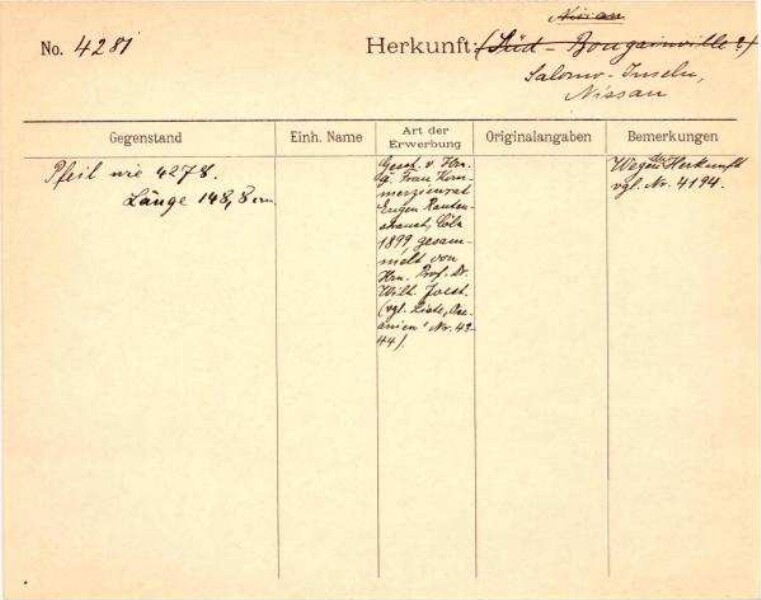 No. 4281
Herkunft: (Süd - Bougainville ?)
Salomo - Inseln,
Nissau
Gegenstand
Einh. Name
Art der
Erwerbung
Originalangaben
Bemerkungen
Pfeil wie 4278.
Länge 148,8 cm
Gesch. v. Hrn.
u. Frau Kom-
merzienrat
Eugen Rauten-
strauch, Cöln
1899, gesam-
melt von
Hrn. Prof. Dr.
Wilh. Joest.
(vgl. Liste, Oze-
anien' Nr. 43-
44).
Wegen der Herkunft
vgl. Nr. 4194.